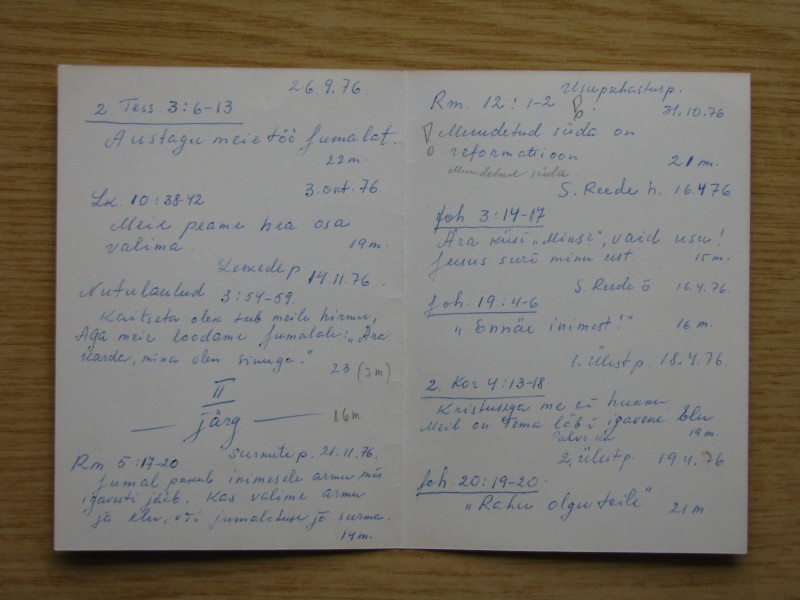 26.9.76.
2. Tess. 3:6-13
Austagu meie töö Jumalat.
22 m.
3. okt. 76
Lk. 10:38-42
Meie peame hea osa
valima.
19 m.
14.11.76.
Nutulaulud 3:54-59.
Kaitseta olek tub meile hirmu,
Aga meie loodame Jumalale: "Ära
karda, mina olen sinuga."
23 (3m)
II
järg
16 m
Surnutep. 21.11.76.
Rm 5:17-20
Jumal panub inimesele armu, mis
igavesti jääb. Kas valime armu
ja elu, või jumalatuse ja surma.
14 m.
Usupuhastusp.
Rm. 12:1-2
31.10.76
Muudetud süda on
reformatsioon
21 m.
Muudetud süda
S. Reede h. 16.4.76
Joh 3:14-17
Ära küsi "Miks?", vaid usu!
Jeesus suri minu eest
15 m.
S. Reede õ 16.4.76.
Joh. 19:4-6
"Ennäe inimest!"
16 m.
1. Ülestp. 18.4.76.
2. Kor 4:13-18
Kristusega me ei hukku
Meil on Tema läbi igavene Elu
19 m.
2. Ülestp. 19.4.76
Joh. 20:19-20
"Rahu olgu teile"
21 m.